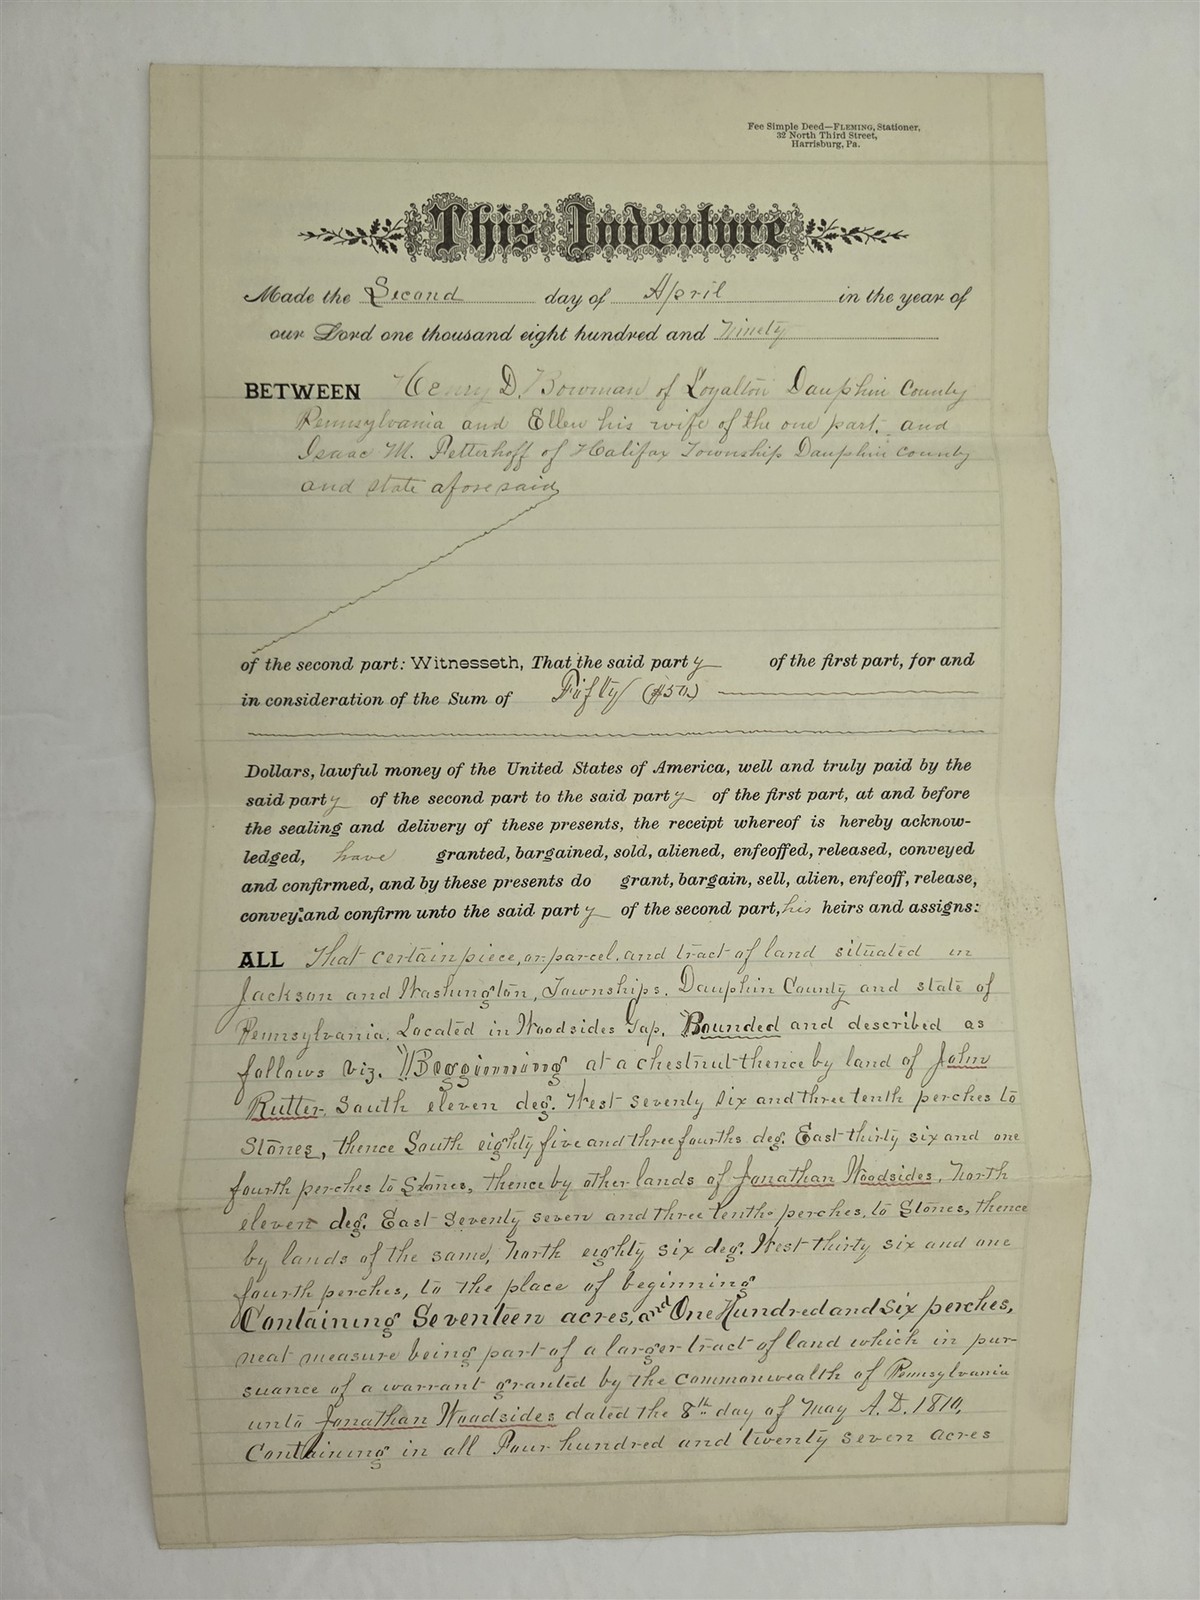 Fee Simple Deed—FLEMING, Stationer,
32 North Third Street,
Harrisburg, Pa.
This Indenture
Made the Second day of April in the year of
our Lord one thousand eight hundred and Ninety
BETWEEN Henry D. Bowman of Loyalton Dauphin County
Pennsylvania and Ellen his wife of the one part. and
Isaac M. Fetterhoff of Halifax Township Dauphin county
and state aforesaid
of the second part: Witnesseth, That the said party of the first part, for and
in consideration of the Sum of Fifty ($50.)
Dollars, lawful money of the United States of America, well and truly paid by the
said party of the second part to the said party of the first part, at and before
the sealing and delivery of these presents, the receipt whereof is hereby acknow-
ledged, have granted, bargained, sold, aliened, enfeoffed, released, conveyed
and confirmed, and by these presents do grant, bargain, sell, alien, enfeoff, release,
convey and confirm unto the said party of the second part, his heirs and assigns:
ALL That certain piece, or parcel, and tract of land situated in
Jackson and Washington, Townships, Dauphin County and state of
Pennsylvania. Located in Woodsides Gap. Bounded and described as
follows viz. "Beginning at a chestnut thence by land of John
Rutter, South eleven deg. West seventy six and three tenth perches to
Stones, thence South eighty five and three fourths deg. East thirty six and one
fourth perches to Stones, thence by other lands of Jonathan Woodsides, North
eleven deg. East Seventy seven and three tenths perches, to Stones, thence
by lands of the same, North eighty six deg. West thirty six and one
fourth perches, to the place of beginning
Containing Seventeen acres, and One Hundred and six perches,
neat measure being part of a larger tract of land which in pur-
suance of a warrant granted by the commonwealth of Pennsylvania
unto Jonathan Woodsides dated the 8th day of May A.D. 1810,
Containing in all Four hundred and twenty seven acres